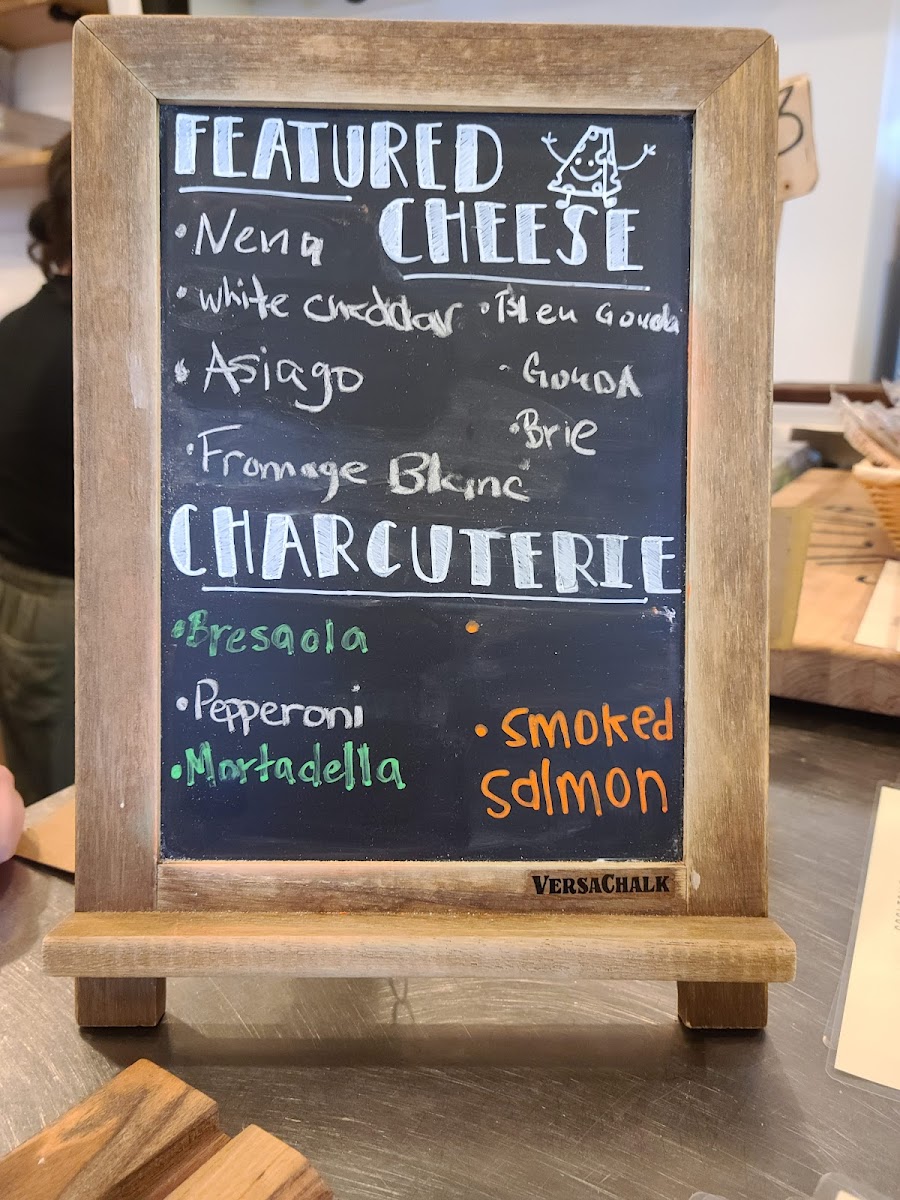 FEATURED
CHEESE
• Nena
• white cheddar
• Asiago
• Fromage Blanc
• Bleu Gouda
• GOUDA
• Brie
CHARCUTERIE
• Bresaola
• Pepperoni
• Mortadella
• smoked
salmon
VERSACHALK
3